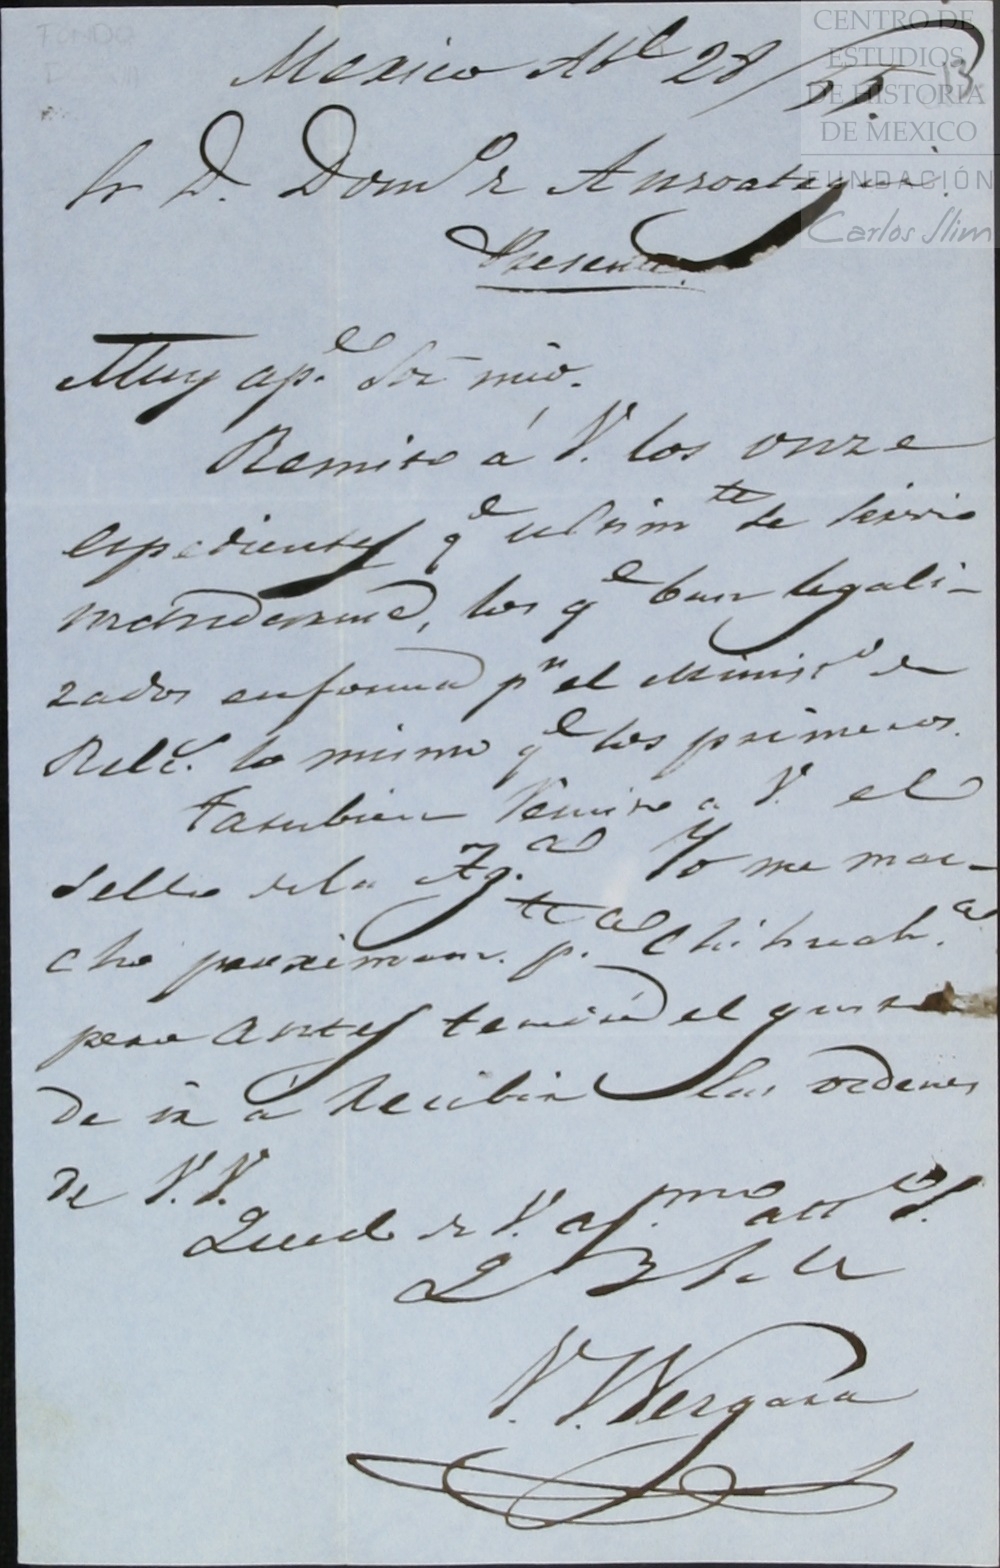 CENTRO DE
ESTUDIOS
DE HISTORIA
DE MEXICO
FUNDACIÓN
Carlos Slim
FONDO
13
Mexico Abl 28/55.
Sr D. Domo R Ansoategui.
Presente.
Muy ape Sor mio.
Remito á V. los onze
espedientes qe ultimte se sirvió
mandarme, los qe ban legali-
zados en forma pr el Minisº de
Rele. lo mismo qe los primeros.
Tambien Remito a V. el
sello de la Ygª Yo me mar-
cho proximamte. pª Chihuahª
pero antes tendré el gusto
de ir á recibir las ordenes
de V.V.
Quedo de V. afmo atto S.
Q B S M
V. V. Vergara